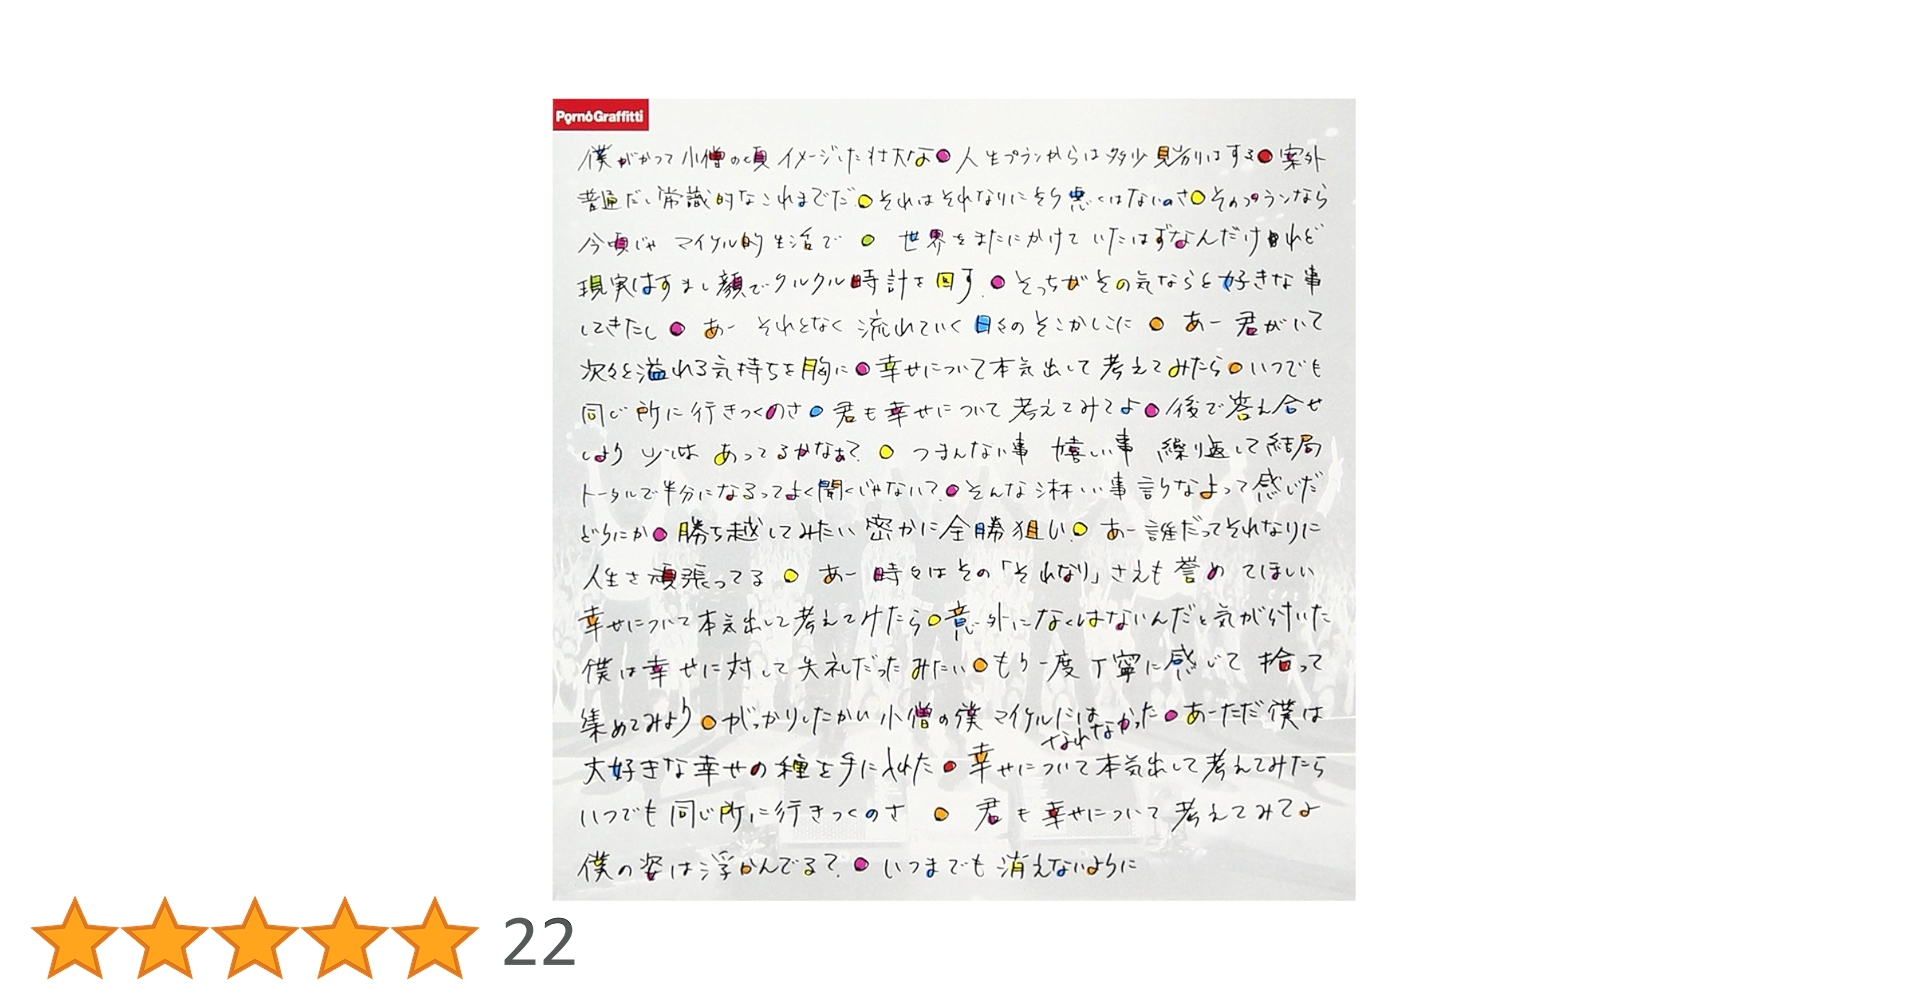 PornoGraffitti
僕がかつて小僧の頃 イメージした壮大な●人生プランからは多少見劣りはする●案外
普通だし常識的なこれまでだ●それはそれなりにそう悪くはないのさ●そのプランなら
今頃じゃ マイケル的生活で ● 世界をまたにかけていたはずなんだけれど
現実はすまし顔でクルクル時計を回す●そっちがその気ならと好きな事
してきたし ● あー それとなく 流れていく日々のそこかしこに ● あー 君がいて
次々と溢れる気持ちを胸に●幸せについて本気出して考えてみたら●いつでも
同じ所に行きつくのさ●君も幸せについて考えてみてよ●後で答え合せ
しよう 少しは あってるかなぁ? ● つまんない事 嬉しい事 繰り返して結局
トータルで半分になるってよく聞くじゃない?●そんな淋しい事言うなよって感じだ
どうにか●勝ち越してみたい 密かに全勝狙い●あー誰だってそれなりに
人生を頑張ってる ● あー 時々はその「それなり」さえも誉めてほしい
幸せについて本気出して考えてみたら●意外になくはないんだと気が付いた
僕は幸せに対して失礼だったみたい●もう一度丁寧に感じて 拾って
集めてみよう●がっかりしたかい小僧の僕 マイケルにはなれなかった●あーただ僕は
大好きな幸せの種を手に入れた●幸せについて本気出して考えてみたら
いつでも同じ所に行きつくのさ ● 君も幸せについて考えてみてよ
僕の姿は浮かんでる?●いつまでも消えないように
22